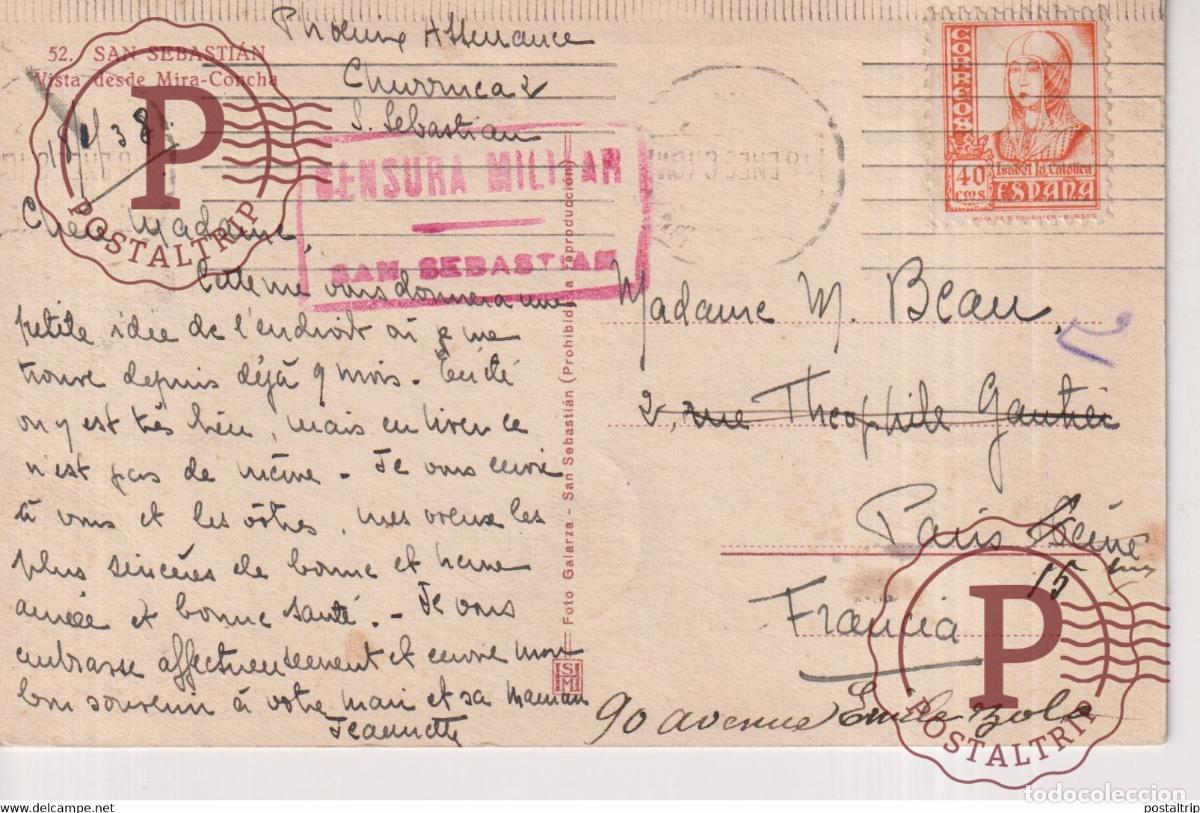 52. SAN SEBASTIÁN
Vista desde Mira-Concha
Phoenix Assurance
Churruca 2
S. Sebastian
1/38
CENSURA MILITAR
SAN SEBASTIAN
CORREOS
40 CMS
Isabel la Católica
ESPAÑA
HIJA DE B. FOURNIER-BURGOS
Chère Madame,
Carte me vous donnera une
petite idée de l'endroit où je me
trouve depuis déjà 9 mois. En été
on y est très bien, mais en hiver ce
n'est pas de même - Je vous envoie
à vous et les vôtres, mes voeux les
plus sincères de bonne et heureuse
année et bonne santé. - Je vous
embrasse affectueusement et envoie mon
bon souvenir à votre mari et sa Maman
Jeannette
Foto Galarza - San Sebastián (Prohibida la reproducción)
Madame M. Beau,
2, rue Theophile Gautier
Paris
15
Francia
90 avenue Emile Zola
P
POSTALTRIP
P
POSTALTRIP
todocoleccion.net
www.delcampe.net
postaltrip